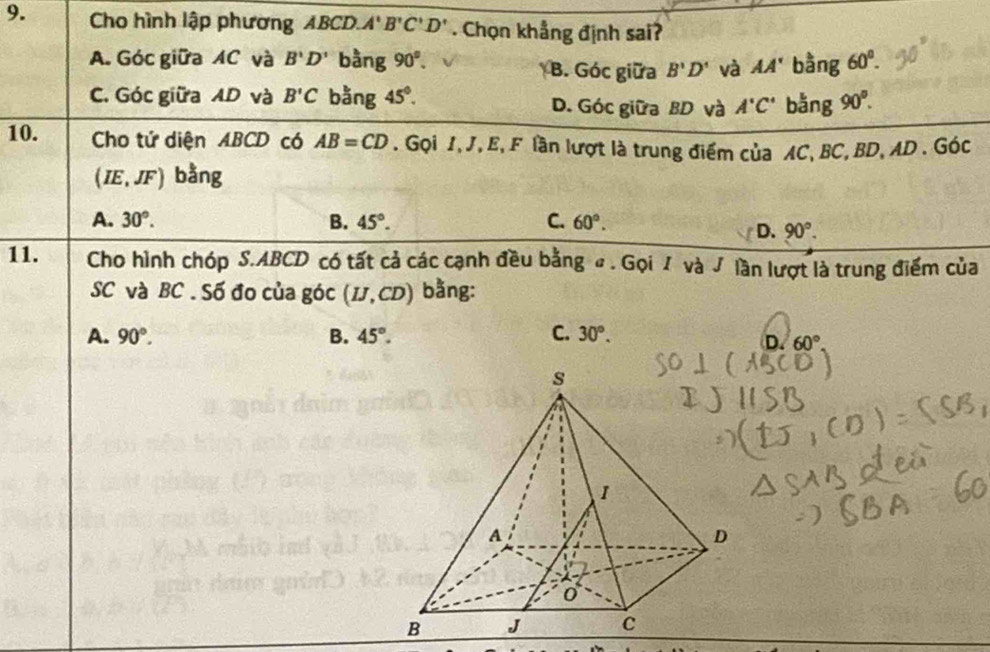 9. Cho hình lập phương ABCD.A'B'C'D'. Chọn khẳng định sai?
A. Góc giữa AC và B'D' bằng 90°. ✓
B. Góc giữa B'D' và AA' bằng 60°. 90°
C. Góc giữa AD và B'C bằng 45°.
D. Góc giữa BD và A'C' bằng 90°.
10. Cho tứ diện ABCD có AB = CD. Gọi I, J, E, F lần lượt là trung điểm của AC, BC, BD, AD. Góc
(IE, JF) bằng
A. 30°. B. 45°. C. 60°. D. 90°.
11. Cho hình chóp S.ABCD có tất cả các cạnh đều bằng a. Gọi I và J lần lượt là trung điểm của
SC và BC. Số đo của góc (IJ, CD) bằng:
A. 90°. B. 45°. C. 30°. D. 60°.
SO ⊥ (ABCD)
IJ // SB
=> (IJ, CD) = (SB,
Δ SAB đều
=> SBA = 60
S
I
A
D
O
B
J
C